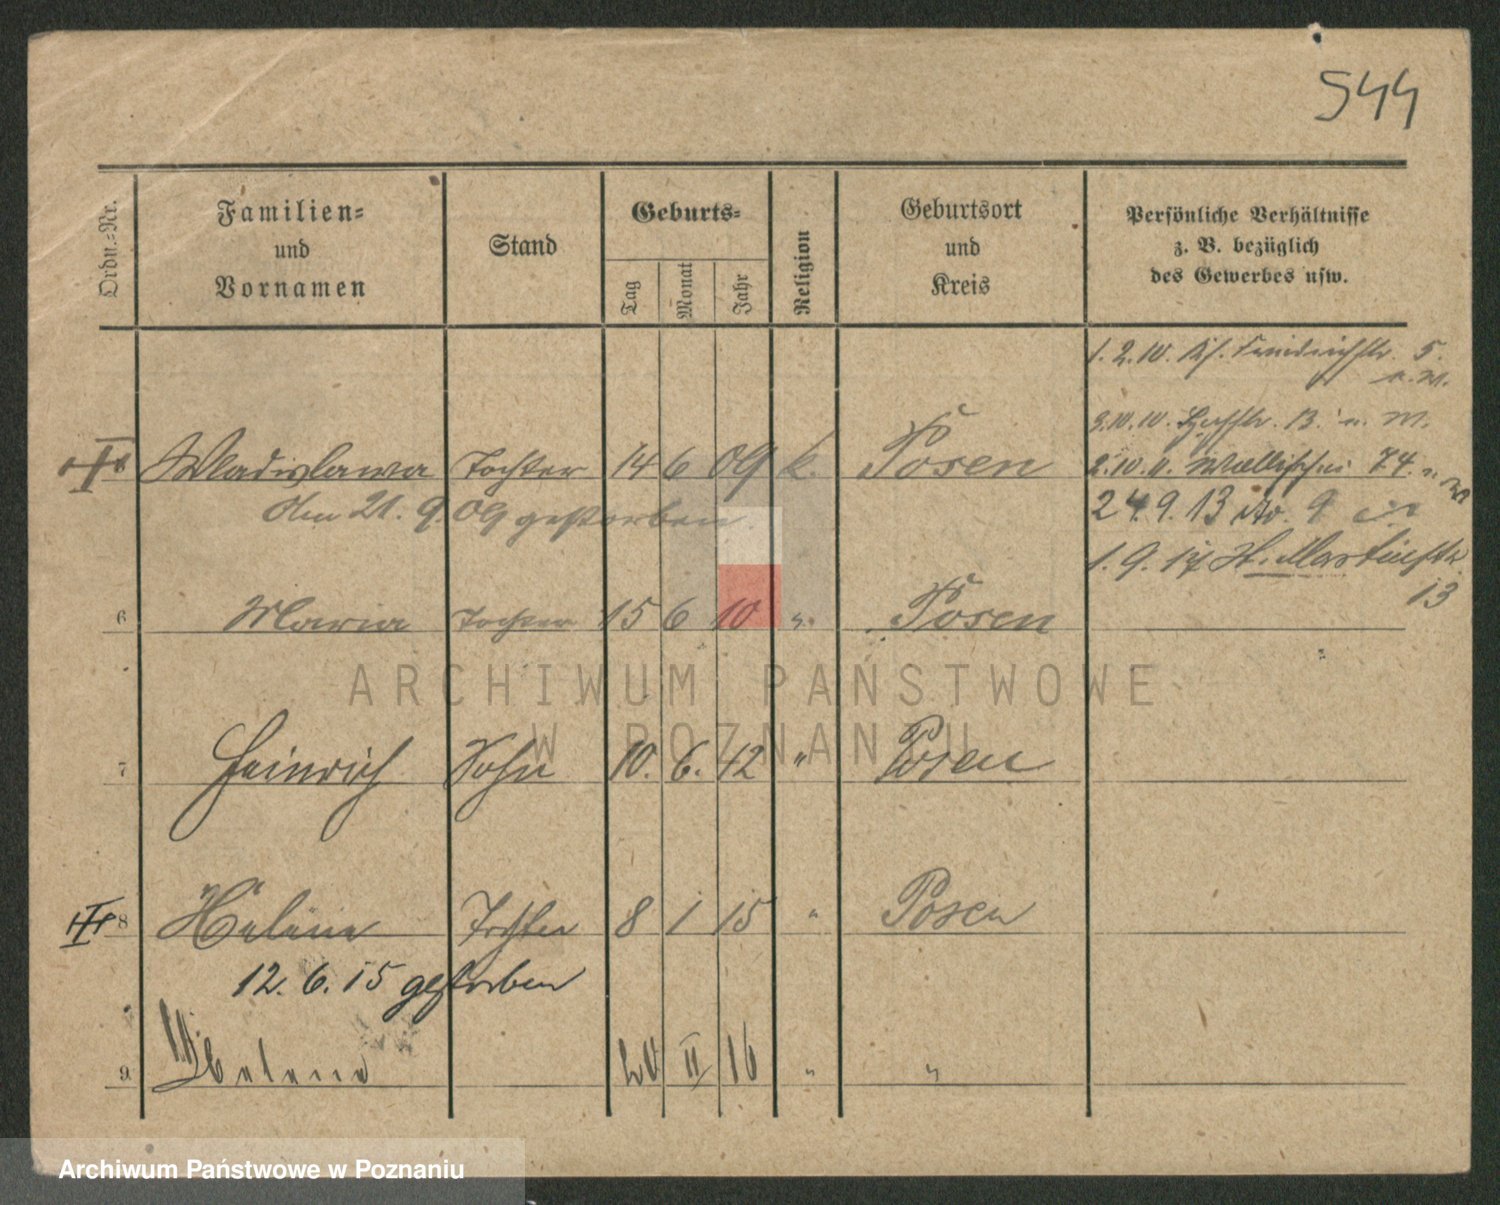 544
Ordn.-Nr.
Familien-
und
Vornamen
Stand
Geburts-
Tag
Monat
Jahr
Religion
Geburtsort
und
Kreis
Persönliche Verhältnisse
z. B. bezüglich
des Gewerbes usw.
1. 2. 10. Friedrichstr. 5.
u. M.
3. 10. 10. 13. u. M.
Wladislawa Tochter 14 6 09 k. Posen 2. 10. 11. Wallischei 74. u. M
den 21. 9. 09 gestorben. 24. 9. 13 No. 9
1. 9. 17 St. Martinstr.
13
6 Maria Tochter 15 6 10 " Posen
7 Heinrich Sohn 10. 6. 12 " Posen
8 Helene Tochter 8 1 15 " Posen
12. 6. 15 gestorben
9 Helene 20 II 16 " "
ARCHIWUM PAŃSTWOWE
W POZNANIU
Archiwum Państwowe w Poznaniu